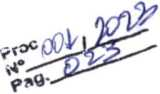 Proc 001, 2023
Nº
Pag. 023